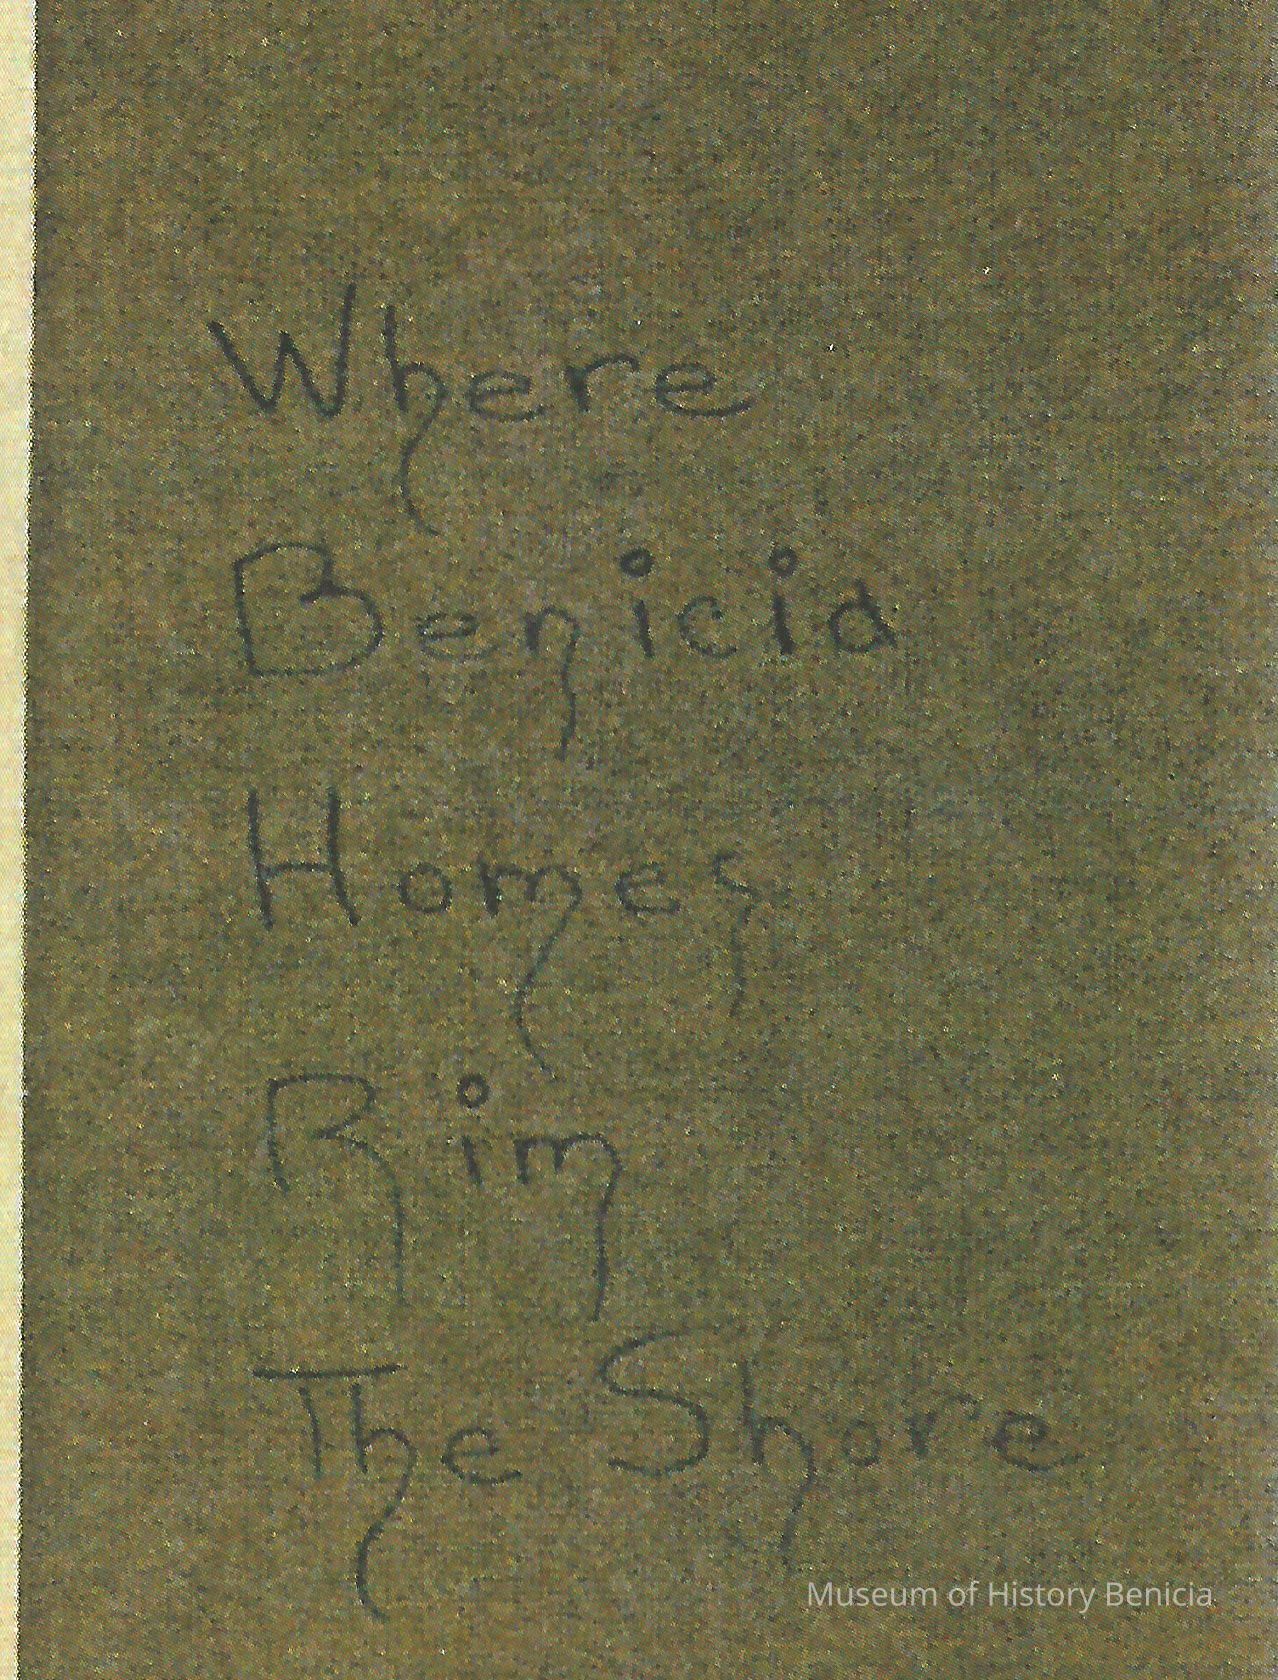 Where
Benicia
Homes
Rim
The Shore
Museum of History Benicia